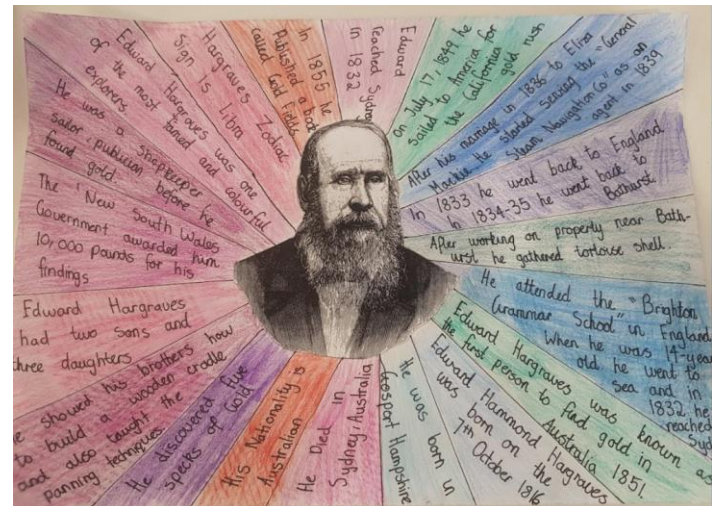 Edward
reached Sydney
in 1832
on July 17, 1849 he
sailed to America for
the California gold rush
After his marriage in 1836 to Eliza
Mackie he started serving the "General
Steam Navigation Co" as an
agent in 1839
In 1833 he went back to England
In 1834-35 he went back to
Bathurst
After working on property near Bath-
urst he gathered tortoise shell.
He attended the "Brighton
Grammar School" in England
When he was 14-year
old he went to
sea and in
1832 he
reached
Syd
Edward Hargraves was known as
the first person to find gold in
Australia 1851.
Edward Hammond Hargraves
was born on the
7th October 1816
He was born in
Gosport Hampshire
He Died in
Sydney, Australia
His Nationality is
Australian
He discovered five
specks of Gold
he showed his brothers how
to build a wooden cradle
and also taught the
panning techniques.
Edward Hargraves
had two sons and
three daughters
The 'New South Wales
Government awarded him
10,000 pounds for his
findings
He was a Shopkeeper
sailor, publician before he
found gold
Edward Hargraves was one
of the most famed and colourful
explorers
Hargraves Zodiac
Sign is Libra
In 1855 he
Published a book
called Gold Fields